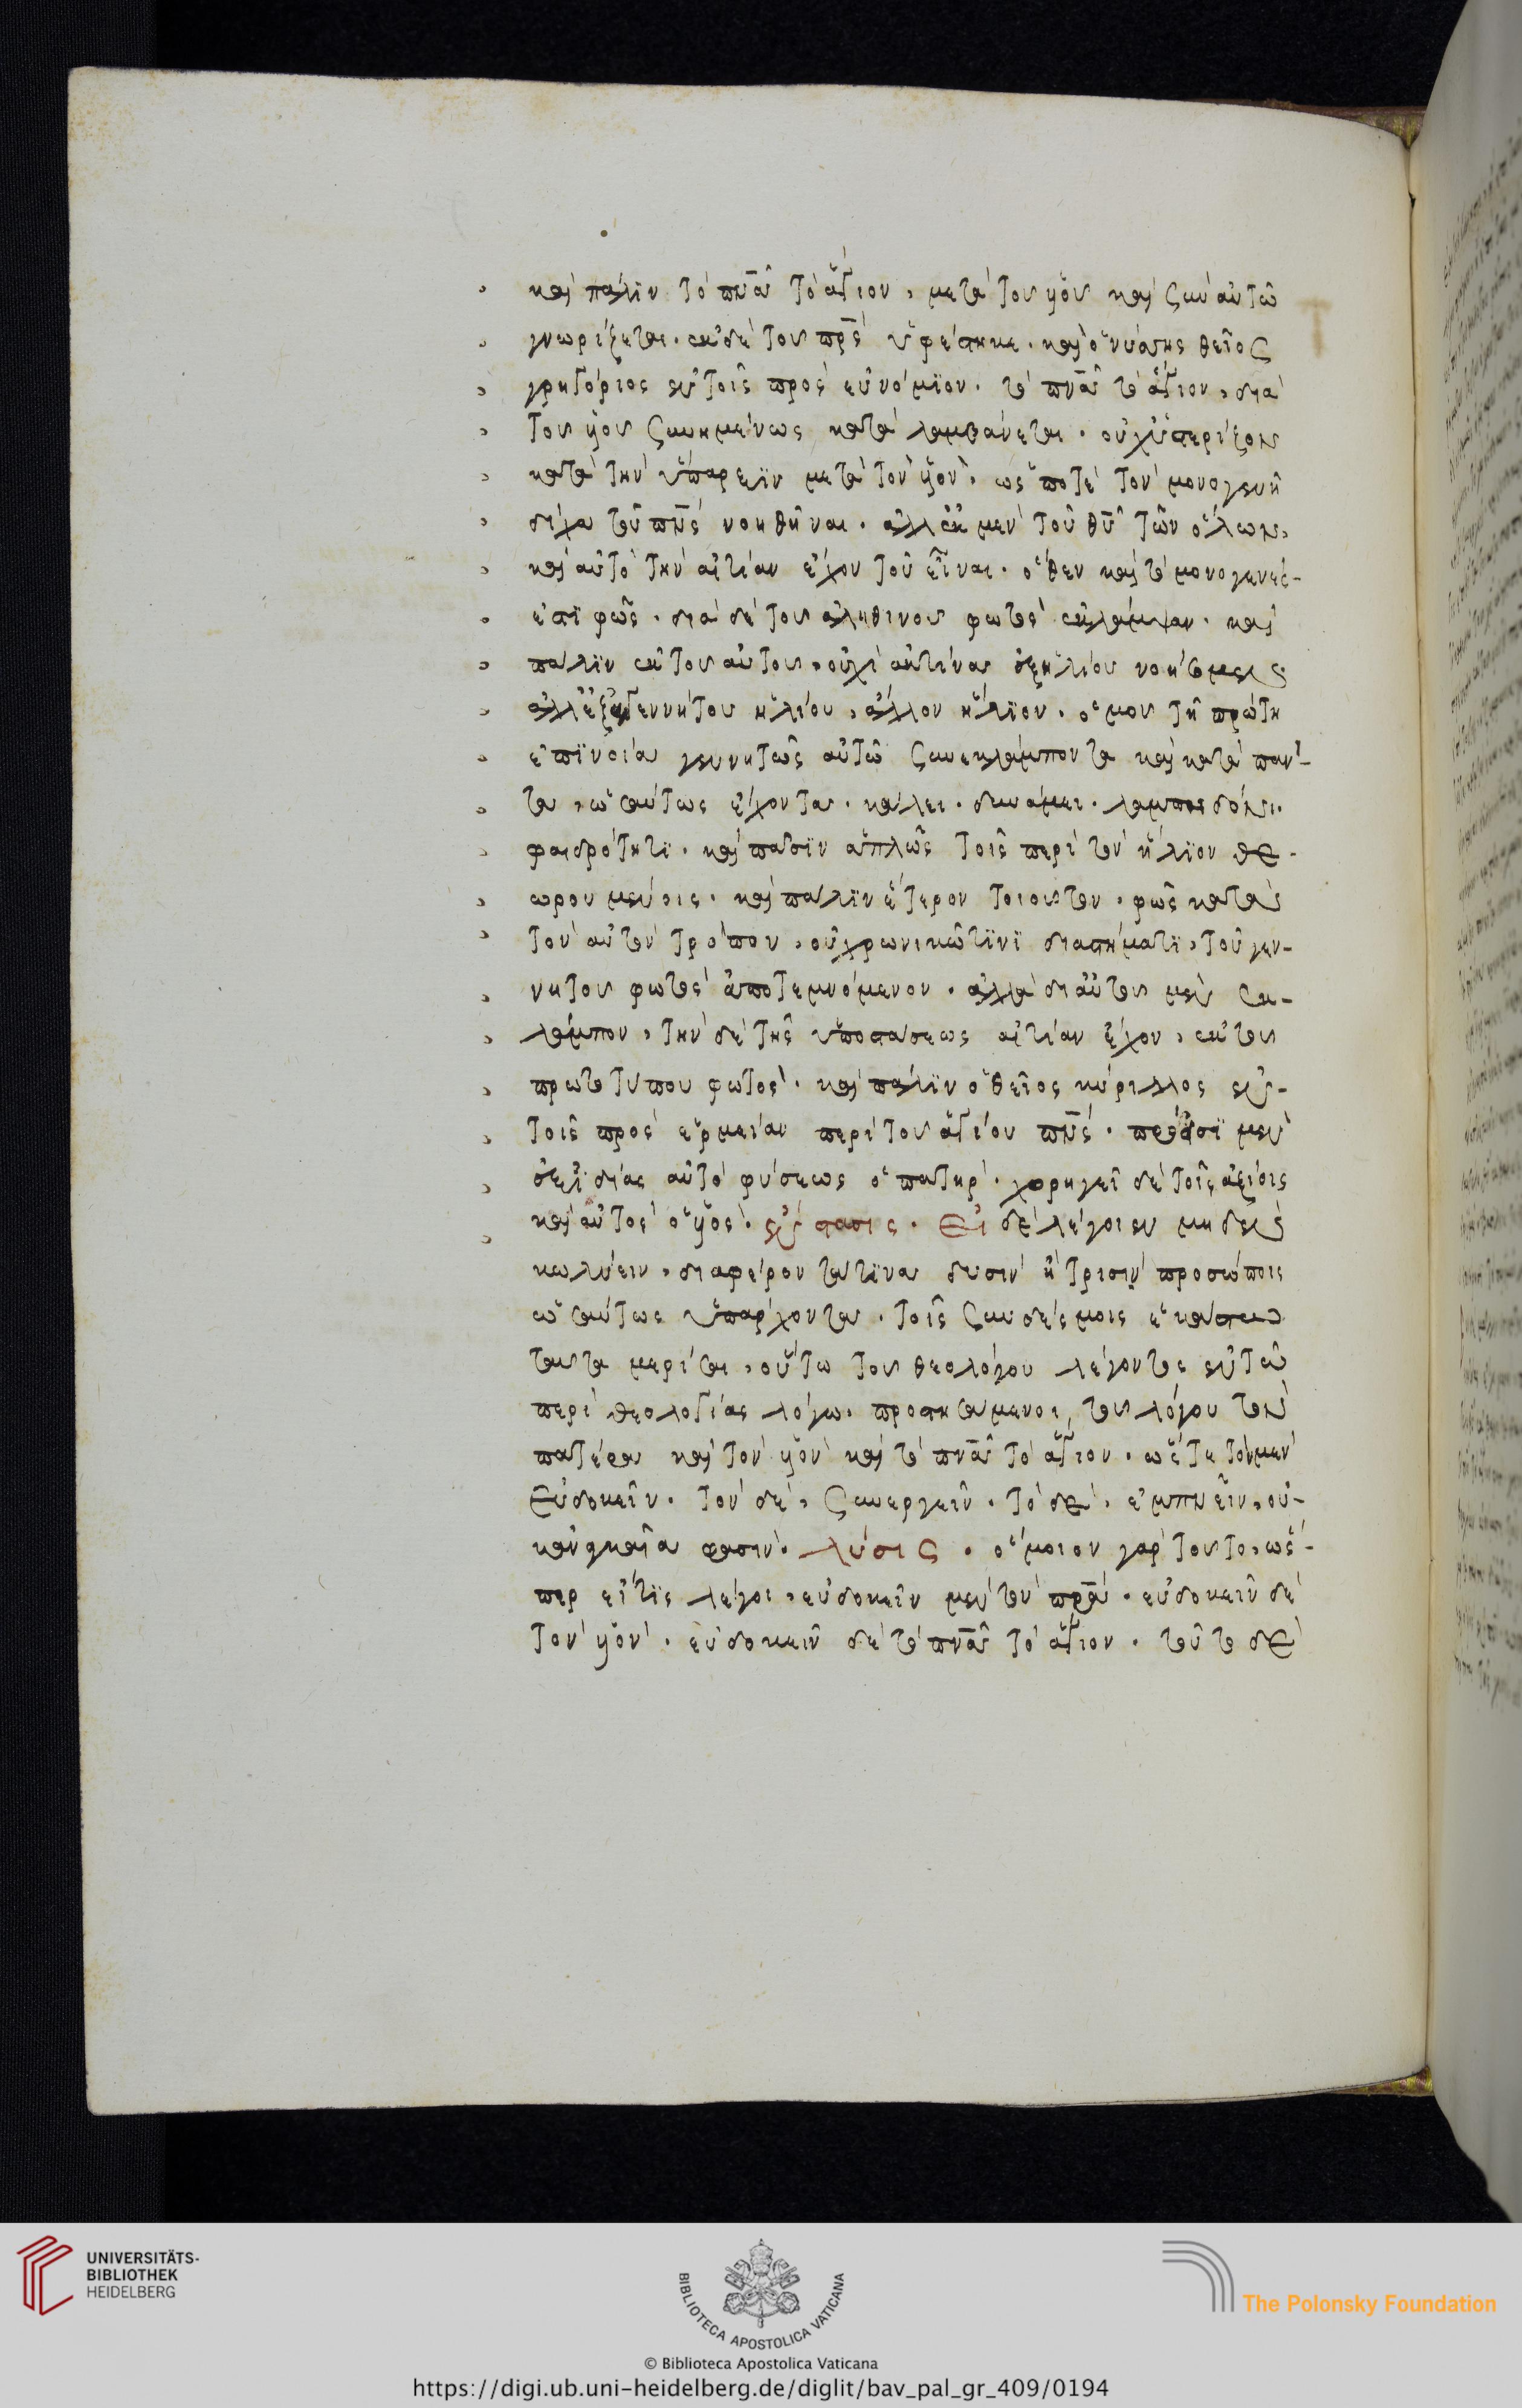 καὶ πάλιν τὸ πνᾶ τὸ ἅγιον, μετὰ του υἱοῦ καὶ συν αὐτῶ
γνωρίζεται. ἐκ δὲ του πρς ὑφέστηκε. καὶ ὁ νύσης θεῖος
γρηγόριος ἐν τοῖς πρὸς εὐνόμιον. τὸ πνᾶ τὸ ἅγιον, διὰ
του υἱοῦ συνημμένως καταλαμβάνεται. οὐχ ὑστερίζον
κατὰ τὴν ὕπαρξιν μετὰ τὸν υἱόν. ὥς ποτε τὸν μονογενῆ
δίχα τοῦ πνς νοηθῆναι. ἀλλ' ἐκ μεν τοῦ θυ τῶν ὅλων,
καὶ αὐτὸ τὴν αἰτίαν ἔχον τοῦ εἶναι. ὅθεν καὶ τὸ μονογενές-
ἐστι φῶς. διὰ δὲ του ἀληθινου φωτὸς ἐκλάμψαν. καὶ
πάλιν ἐκ του αὐτου, οὐχὶ ἀκτίνα ἐξ ἡλίου νοήσομεν.
ἀλλ' ἐξ ἀγεννήτου ἡλίου, ἄλλον ἥλιον. ὁμου τῆ πρώτη
ἐπινοία γεννητῶς αὐτῶ συνεκλάμποντα καὶ κατὰ πάν-
τα, ὡσαύτως ἔχοντα. κάλει. δυνάμει. λαμπηδόνι.
φαιδρότητι. καὶ πᾶσιν ἁπλῶς τοῖς περὶ τὸν ἥλιον θε-
ωρουμένοις. καὶ πάλιν ἕτερον τοιουτον. φῶς κατὰ
τὸν αὐτὸν τρόπον, οὐ χρωνικῶ τινὶ διαστήματι, τοῦ γεν-
νητου φωτὸς ἀποτεμνόμενον. ἀλλὰ δι αὐτου μὲν ἐκ-
λάμπον, τὴν δὲ τῆς ὑποστάσεως αἰτίαν ἔχον, ἐκ του
πρωτοτύπου φωτός. καὶ πάλιν ὁ θεῖος κύριλλος ἐν-
τοῖς πρὸς ἑρμείαν περὶ του ἁγίου πνς. προϊησι μὲν
ἐξ ἰδίας αὐτὸ φύσεως ὁ πατήρ. χορηγεῖ δὲ τοῖς ἀξίοις
καὶ αὐτὸς ὁ υἱός. ἔνστασις. Εἰ δὲ λέγοιεν μηδὲν
κωλύειν, διαφέροντα τινα δυσὶν ἢ τρισὶν προσώποις
ὡσαύτως ὑπάρχοντα. τοῖς συνδέσμοις ἑκάστω
ταυτα μερίσαι, οὕτω του θεολόγου λέγοντος ἐν τῶ
περὶ θεολογίας λόγω. προστησάμενοι, του λόγου τὸν
πατέρα καὶ τὸν υἱὸν καὶ τὸ πνᾶ τὸ ἅγιον. ὥστε τὸν μεν
εὐδοκεῖν. τὸν δὲ, συνεργεῖν. τὸ δὲ, ἐμπνεῖν, οὐ-
κ ἀναγκαῖα φασιν. λύσις. ὅμοιον γὰρ τουτο, ὥς-
περ εἴ τις λέγοι, εὐδοκεῖν μὲν τὸν πρᾶ. εὐδοκεῖν δὲ
τὸν υἱόν. εὐδοκεῖν δὲ τὸ πνᾶ τὸ ἅγιον. τοῦτο δὲ
UNIVERSITÄTS-
BIBLIOTHEK
HEIDELBERG
BIBLIOTECA APOSTOLICA VATICANA
The Polonsky Foundation
© Biblioteca Apostolica Vaticana
https://digi.ub.uni-heidelberg.de/diglit/bav_pal_gr_409/0194